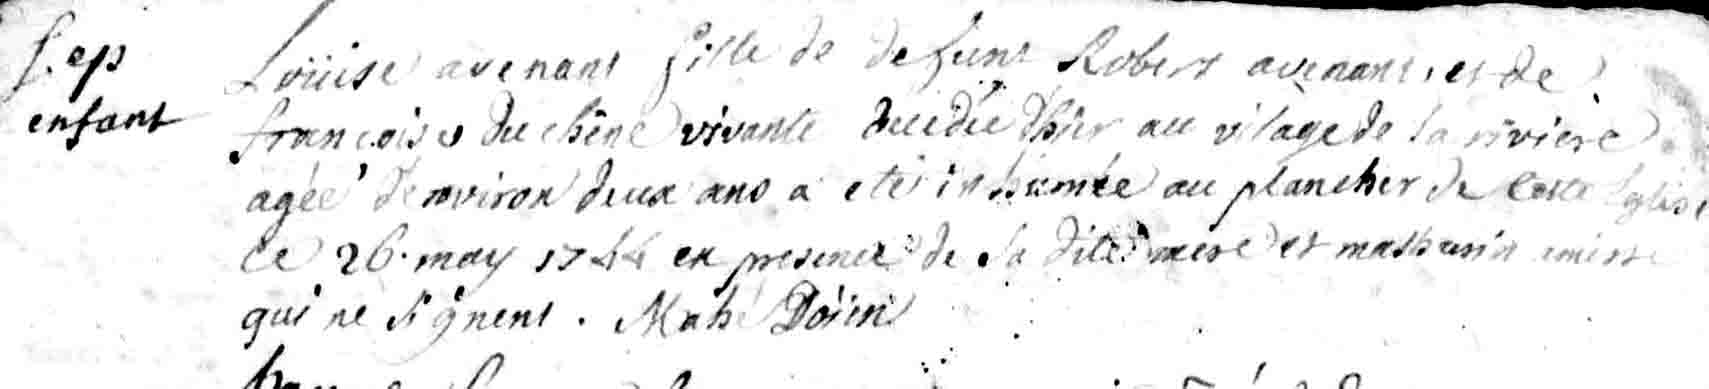 S. ep
enfant
Loüise avenant fille de defunt Robert avenant, et de
françoise du chêne vivante decedée d'hier au vilage de la riviere
agée d'environ deux ans a eté inhumée au plancher de cette Eglise
ce 26. may 1744 en presence de sa dite mere et mathurin
qui ne signent. Mahé Doien